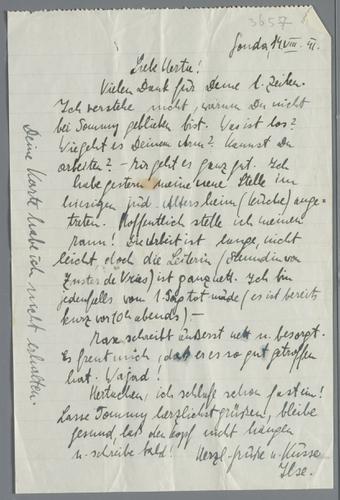 3657
Gouda, 14.VIII.41.
Liebe Herta!
Vielen Dank für Deine l. Zeilen.
Ich verstehe nicht, warum Du nicht
bei Tommy geblieben bist. Was ist los?
Wie geht es Deinem Arm? Kannst Du
arbeiten? – Mir geht es ganz gut. Ich
habe gestern meine neue Stelle im
hiesigen jüd. Altersheim (Küche) ange-
treten. Hoffentlich stelle ich meinen
Mann! Die Arbeit ist lange, nicht
leicht, doch die Leiterin (Freundin von
Zuster de Vries) ist ganz nett. Ich bin
jedenfalls vom 1. Tag tot müde (es ist bereits
kurz vor 10h abends) –
Max schreibt äusserst nett u. besorgt.
Es freut mich, daß er es so gut getroffen
hat.
Hertachen, ich schlafe schon fast ein!
Lasse Tommy herzlichst grüßen, bleibe
gesund, laß den Kopf nicht hängen
u. schreibe bald! Herzl. Grüße u. Küsse
Ilse.
Deine Karte habe ich nicht erhalten.